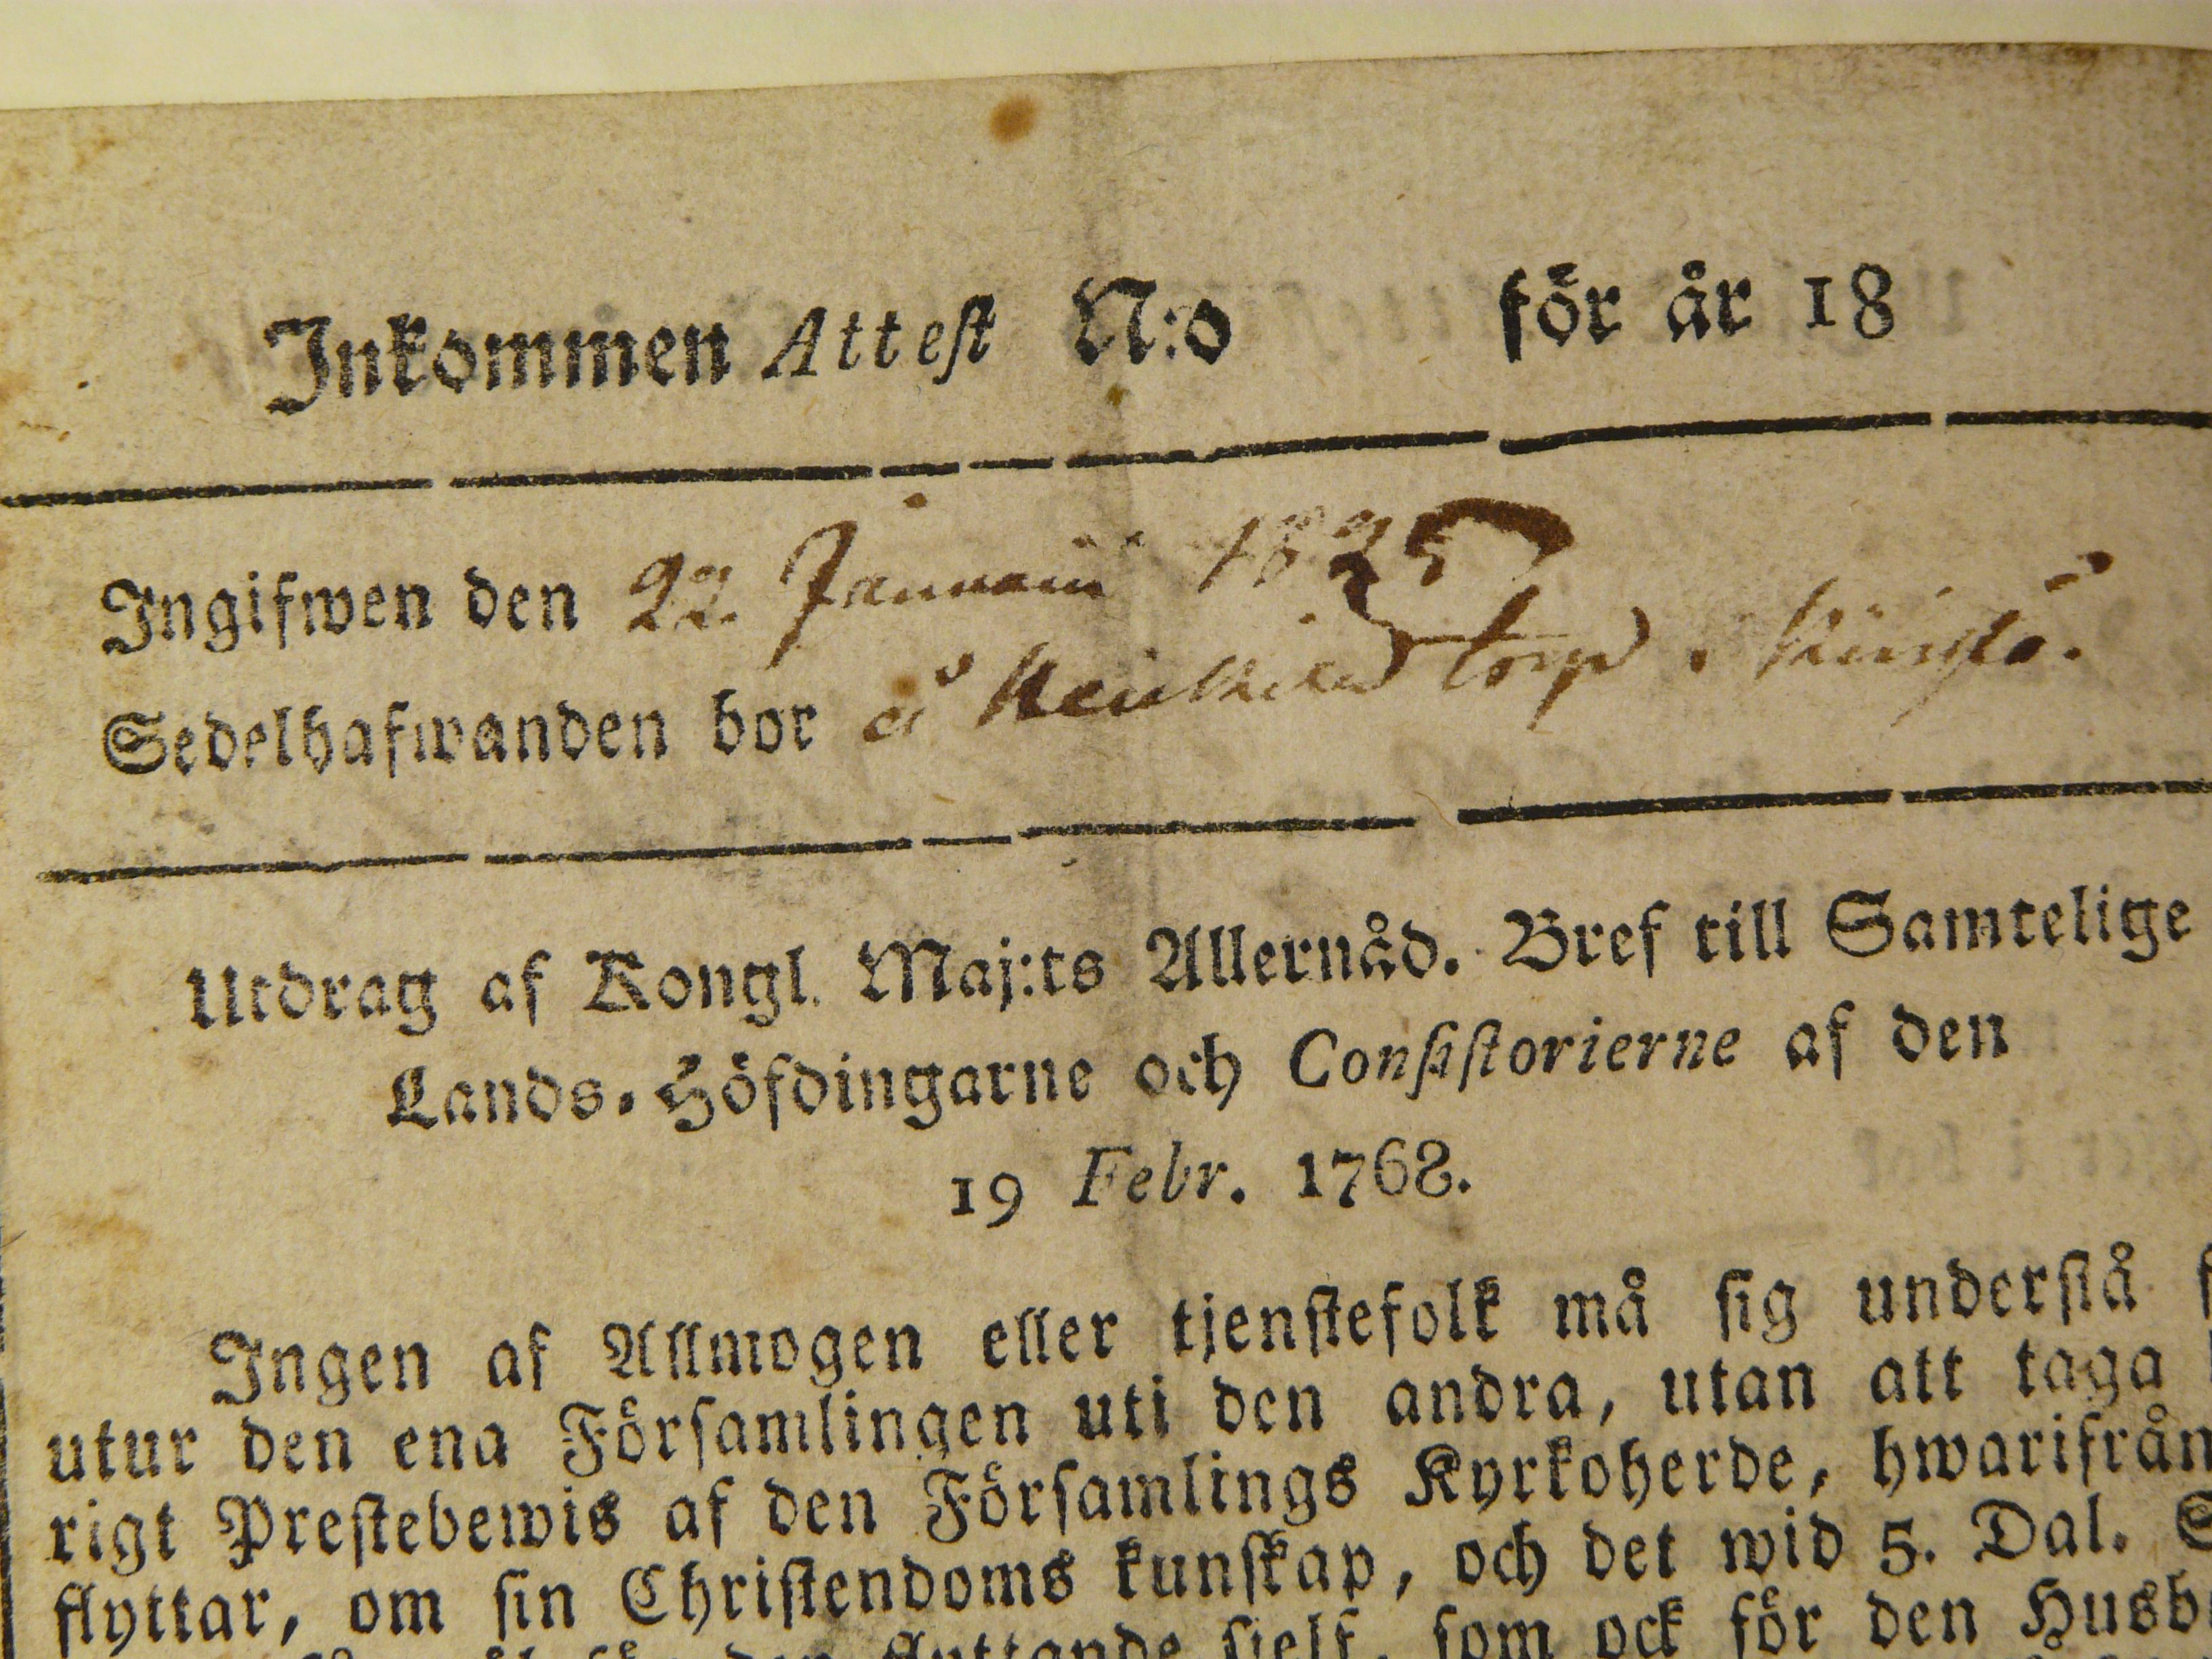 Inkommen Attest N:o för år 18
Ingifwen den 22. Januarii 1825
Sedelhafwanden bor å torp
Utdrag af Kongl. Maj:ts Allernåd. Bref till Samtelige
Lands-Höfdingarne och Consistorierne af den
19 Febr. 1768.
Ingen af Allmogen eller tjenstefolk må sig understå
utur den ena Församlingen uti den andra, utan att taga
rigt Prestebewis af den Församlings Kyrkoherde, hwarifrån
flyttar, om sin Christendoms kunskap, och det wid 5. Dal. S
den flyttande sjelf, som ock för den Husb